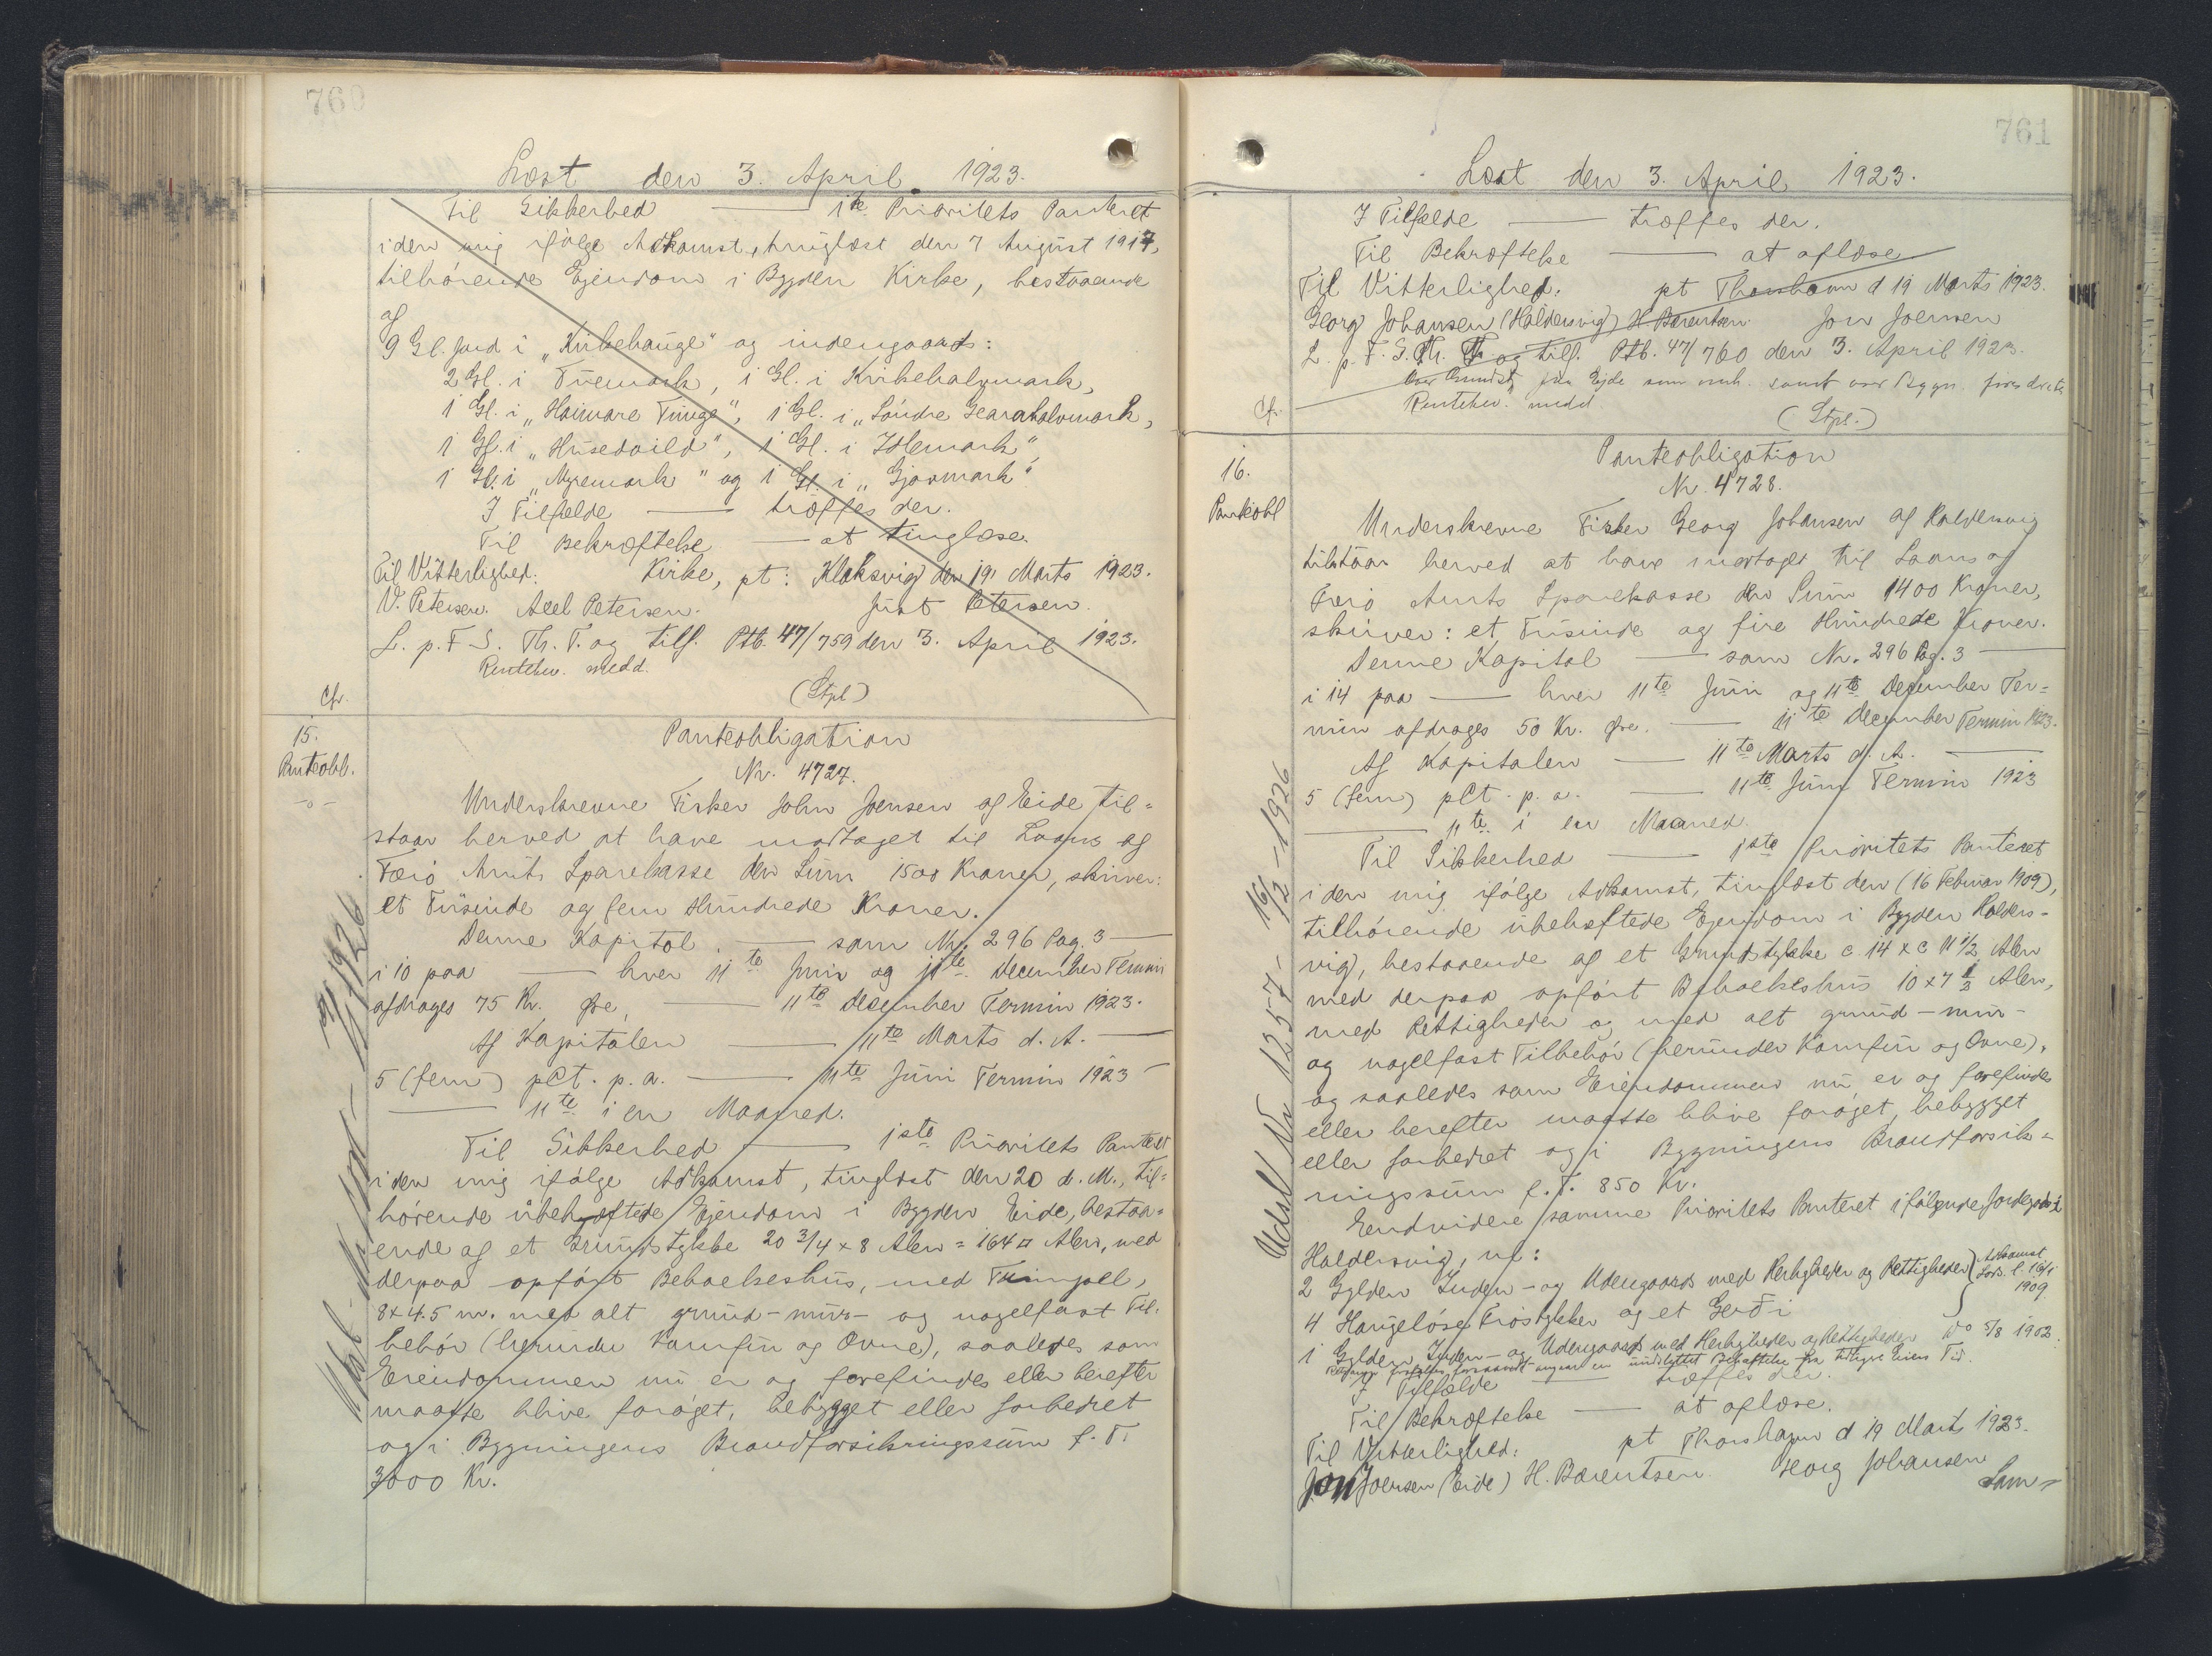 760
Læst den 3. April 1923.
Til Sikkerhed — 1ste Prioritets Panteret
i den mig ifölge Adkomst, tinglæst den 7 August 1917,
tilhörende Ejendom i Bygden Kirke, bestaaende
af
9 Gl. Jord i "Kirkehauge" og indengaards:
2 Gl. i Tüemark, 1 Gl. i Kirkehalvmark,
1 Gl. i "Haimare Tunge", 1 Gl. i "Söndre Gearahalvmark,
1 Gl. i "Husedvild", 1 Gl. i Itlemark",
1 Gl. i "Myremark" og 1 Gl. i "Gjovmark".
I Tilfælde — træffes der.
Til Bekræftelse — at tinglæse.
Til Vitterlighed: Kirke, pt: Klaksvig den 19 Marts 1923.
V. Petersen. Axel Petersen. Just Petersen.
L. p. F. S. Th. T. og tilf. Ptb. 47/759 den 3. April 1923.
Rentebev. medd.
Cfr. (Stpl)
15. Panteobligation
Panteobl. Nr. 4727.
-o-
Underskrevne Fisker John Joensen af Eide til=
staar herved at have modtaget til Laans af
Færö Amts Sparekasse den Sum 1500 Kroner, skriver:
et Tusinde og fem Hundrede Kroner.
Denne Kapital — som Nr. 296 Pag. 3 —
i 10 paa — hver 11te Juni og 11te December Termin
afdrages 75 Kr. Øre, — 11te December Termin 1923.
Af Kapitalen — 11te Marts d. A. —
5 (fem) pCt. p. a. — 11te Juni Termin 1923 —
— 11te i en Maaned.
Til Sikkerhed — 1ste Prioritets Panteret
i den mig ifölge Adkomst, tinglæst den 20 d. M., til=
hörende ubehæftede Ejendom i Bygden Eide, bestaa=
ende af et Grundstykke 20 3/4 x 8 Alen = 164 □ Alen, med
derpaa opfört Beboelseshus, med
8 x 4.5 m. med alt grund- mur- og nagelfast Til=
behör (herunder Komfur og Ovne), saaledes som
Eiendommen nu er og forefindes eller herefter
maatte blive foröget, bebygget eller forbedret
og i Bygningens Brandforsikringssum f. T.
3000 Kr.
761
Læst den 3. April 1923.
I Tilfælde — træffes der.
Til Bekræftelse — at aflæse.
Til Vitterlighed: pt Thorshavn d 19 Marts 1923.
Georg Johansen (Haldersvig) H Bærentsen. Jon Joensen
L. p. F. S. Th. T. og tilf. Ptb. 47/760 den 3. April 1923.
Rentebev. medd
Cfr. (Stpl.)
16. Panteobligation
Panteobl Nr. 4728.
Underskrevne Fisker Georg Johansen af Haldersvig
tilstaar herved at have modtaget til Laans af
Færö Amts Sparekasse den Sum 1400 Kroner,
skriver: et Tusinde og fire Hundrede Kroner.
Denne Kapital — som Nr. 296 Pag. 3 —
i 14 paa — hver 11te Juni og 11te December Ter=
min afdrages 50 Kr. Øre. — 11te December Termin 1923.
Af Kapitalen — 11te Marts d. A. —
5 (fem) pCt. p. a. — 11te Juni Termin 1923
— 11te i en Maaned.
Til Sikkerhed — 1ste Prioritets Panteret
i den mig ifölge Adkomst, tinglæst den (16 Februar 1909),
tilhörende ubehæftede Ejendom i Bygden Halders-
vig, bestaaende af et Grundstykke c. 14 x c 11 1/2 Alen
med derpaa opfört Beboelseshus 10 x 7 1/2 Alen,
med Rettigheder og med alt grund- mur-
og nagelfast Tilbehör (herunder Komfur og Ovne),
og saaledes som Eiendommen nu er og forefindes
eller herefter maatte blive foröget, bebygget
eller forbedret og i Bygningens Brandforsik=
ringssum f. T. 850 Kr.
Endvidere samme Prioritets Panteret i fölgende Jordegods i
Haldersvig, nl:
2 Gylden Inden- og Udengaards med Herligheder og Rettigheder } Adkomst
4 Haugelöse Tröstykker og et Gerdi 1909
1 Gylden Inden- og Udengaards med Herligheder og Rettigheder Do 5/8 1902.
I Tilfælde — træffes der.
Til Bekræftelse — at aflæse.
Til Vitterlighed: pt Thorshavn d 19 Marts 1923.
Jon Joensen (Eide) H. Bærentsen. Georg Johansen
Sam=
Udsl. Nr. 1257- 16/2-1926